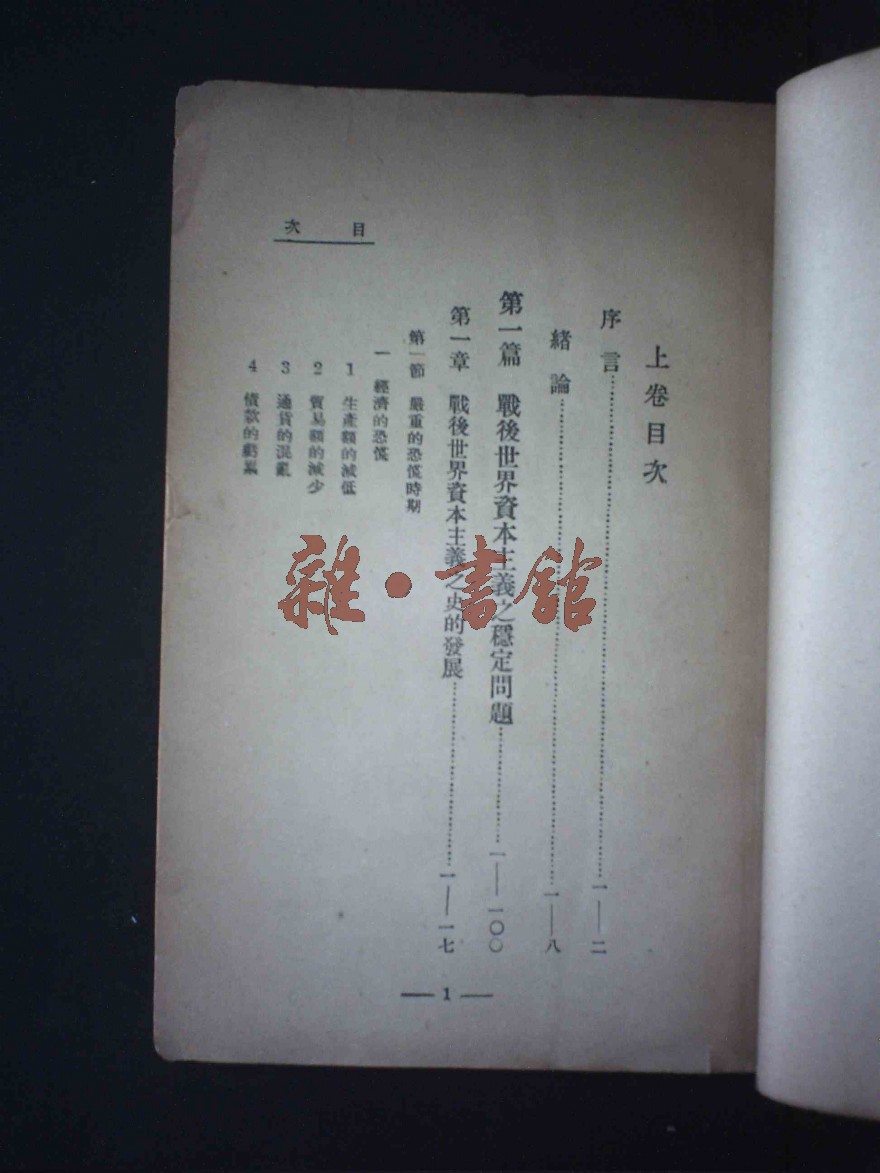 目次
上卷目次
序言……一——二
緒論……一——八
第一篇 戰後世界資本主義之穩定問題……一——一〇〇
第一章 戰後世界資本主義之史的發展……一——一七
第一節 嚴重的恐慌時期
一 經濟的恐慌
1 生產額的減低
2 貿易額的減少
3 通貨的混亂
4 債款的虧累
— 1 —
雜·書館